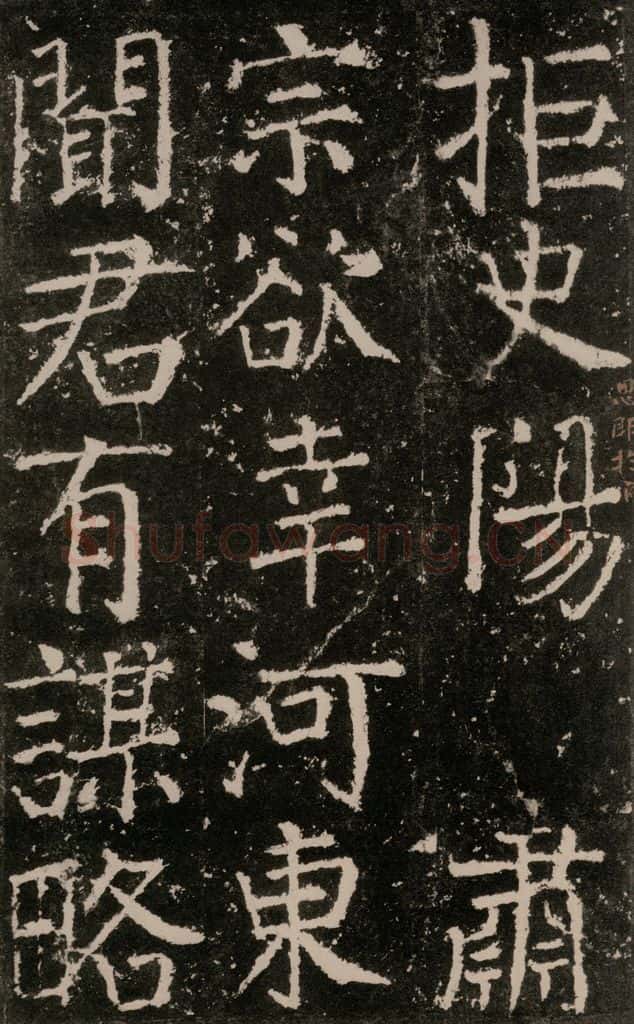 拒史陽肅
宗欲幸河東
聞君有謀略
Shufawang.CN